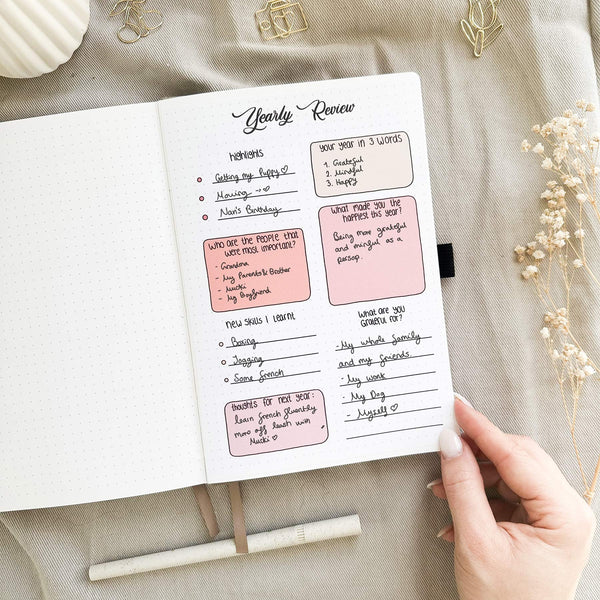 Yearly Review
highlights
Getting my Puppy ♡
Moving → ♡
Nan's Birthday
your year in 3 words
1. Grateful
2. Mindful
3. Happy
Who are the people that
were most important?
- Grandma
- My Parents & Brother
- Mucki
- My Boyfriend
What made you the
happiest this year?
Being more grateful
and minful as a
person.
new skills I learnt
Boxing
Jogging
Some french
What are you
grateful for?
- My whole family
and my friends.
- My work
- My Dog
- Myself ♡
thoughts for next year:
learn french fluently
more off leash with
Mucki ♡